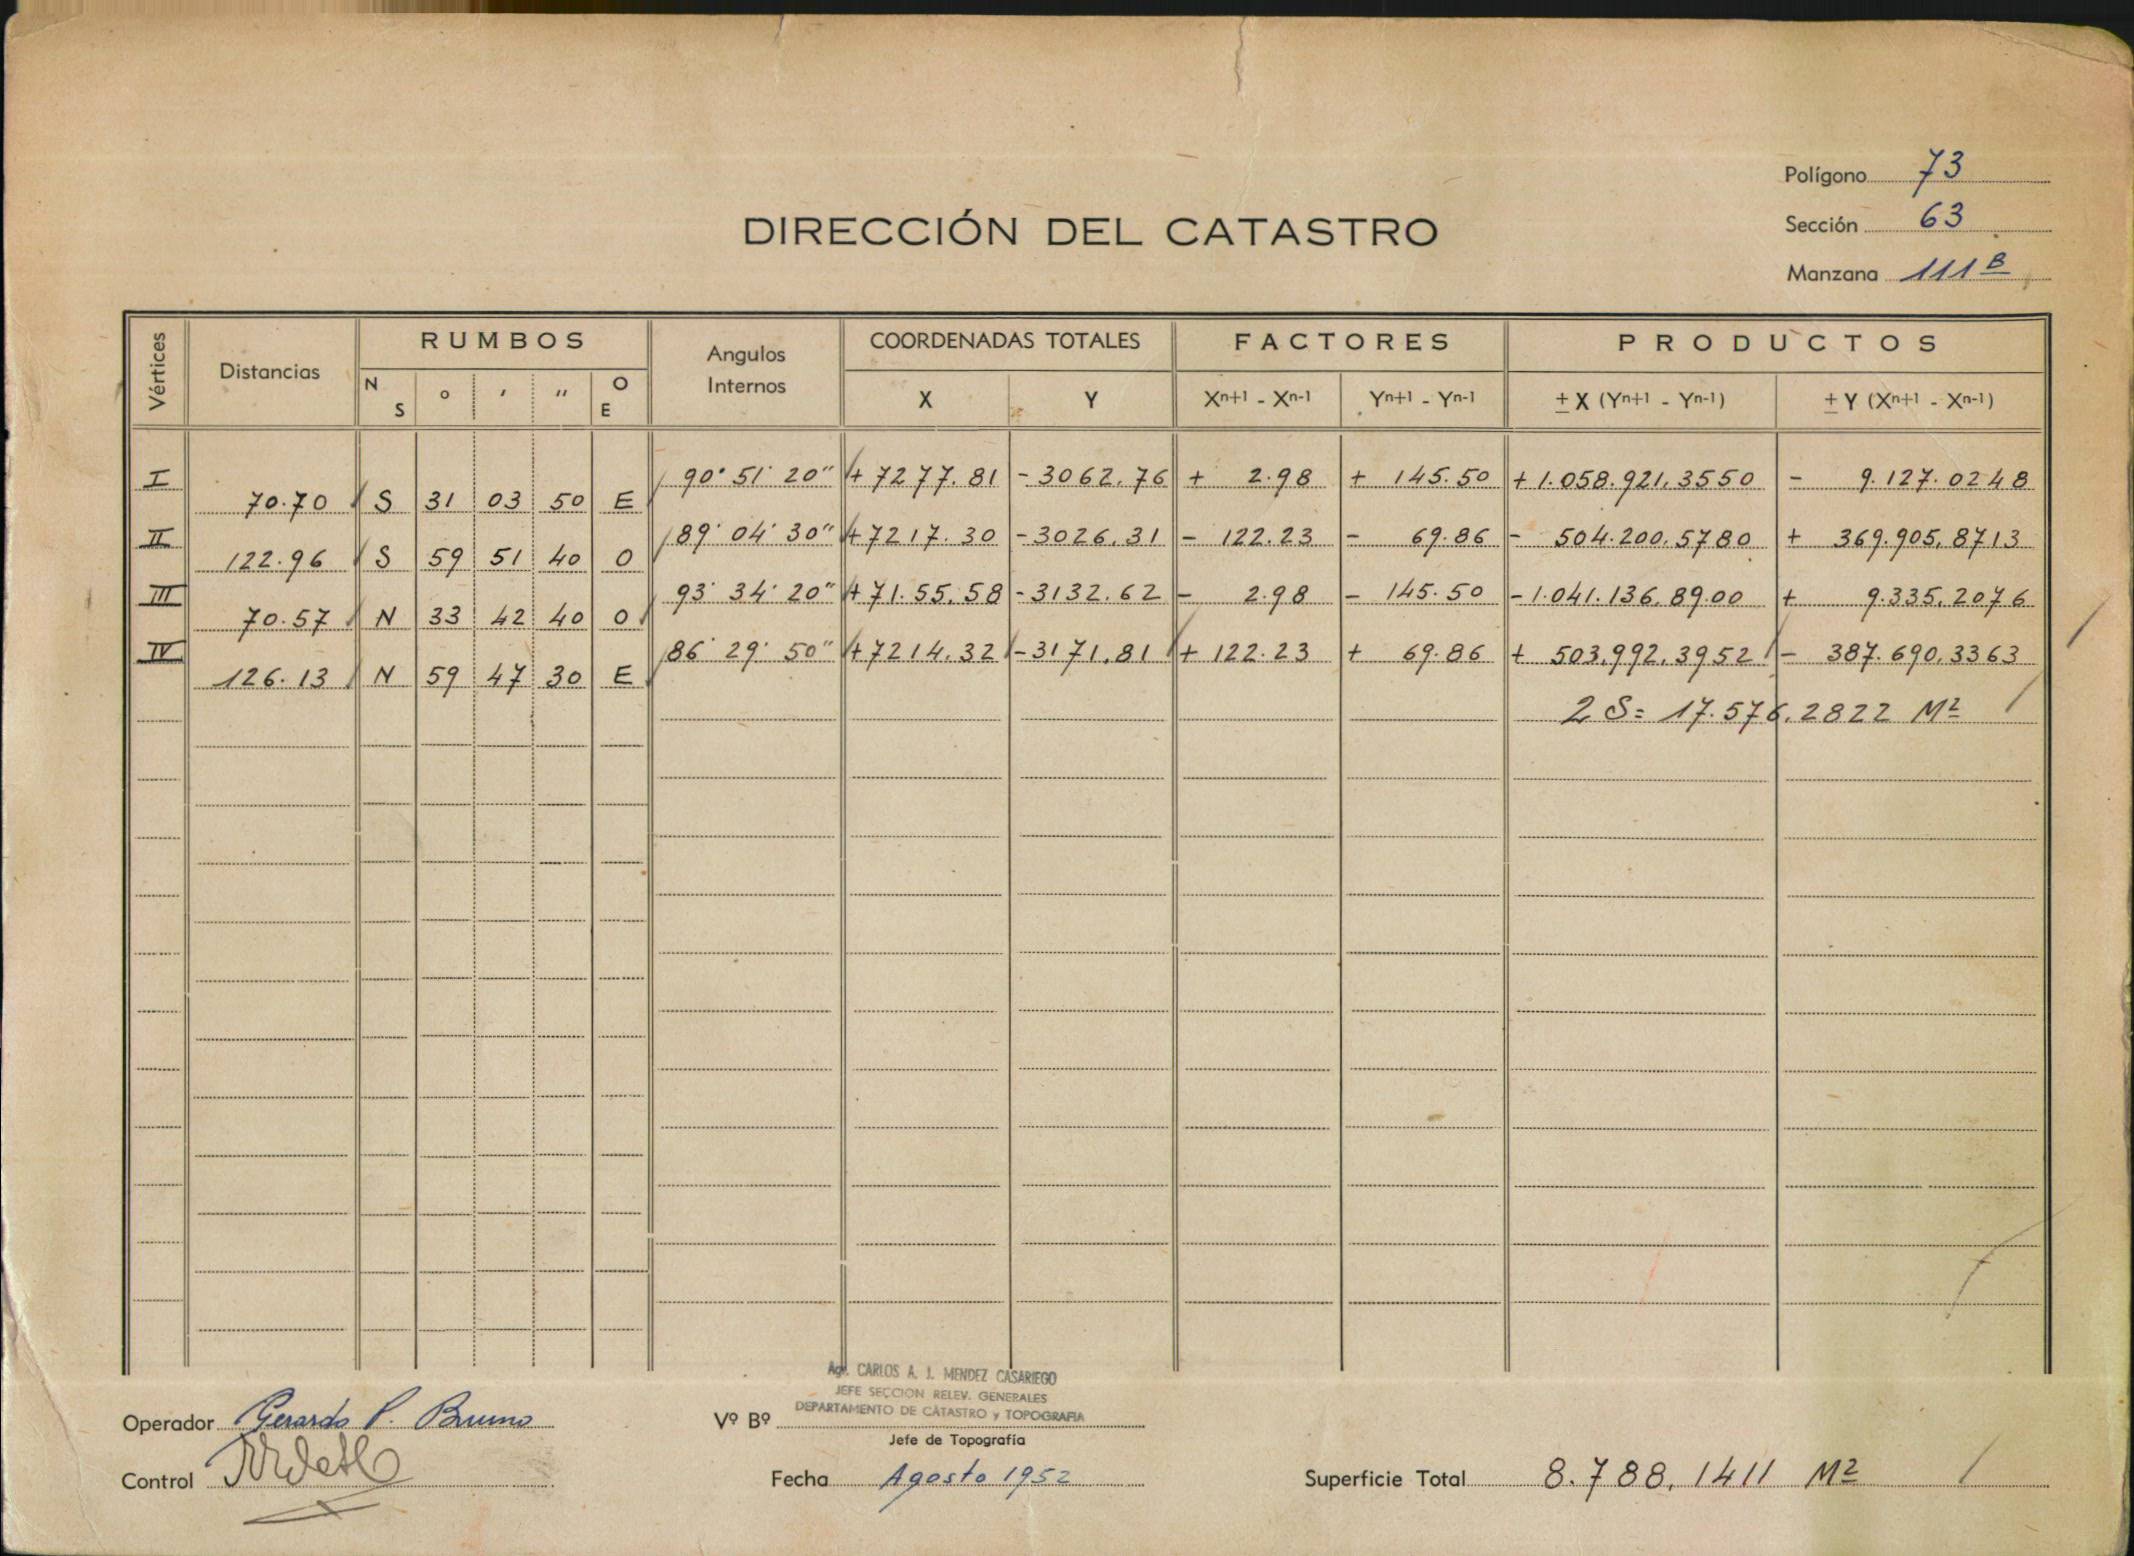 Polígono 73
Sección 63
Manzana 111 B
DIRECCIÓN DEL CATASTRO
Vértices Distancias RUMBOS Angulos Internos COORDENADAS TOTALES FACTORES PRODUCTOS
N S ° ′ ″ O E X Y Xn+1 - Xn-1 Yn+1 - Yn-1 ± X (Yn+1 - Yn-1) ± Y (Xn+1 - Xn-1)
I 90° 51' 20" + 7277.81 - 3062.76 + 2.98 + 145.50 + 1.058.921,3550 - 9.127.0248
70.70 S 31 03 50 E
II 89° 04' 30" + 7217.30 - 3026.31 - 122.23 - 69.86 - 504.200,5780 + 369.905,8713
122.96 S 59 51 40 O
III 93° 34' 20" + 71.55.58 - 3132.62 - 2.98 - 145.50 - 1.041.136,89.00 + 9.335,2076
70.57 N 33 42 40 O
IV 86° 29' 50" + 7214.32 - 3171.81 + 122.23 + 69.86 + 503.992,3952 - 387.690,3363
126.13 N 59 47 30 E
2 S = 17.576,2822 M2
Agr. CARLOS A. J. MENDEZ CASARIEGO
JEFE SECCION RELEV. GENERALES
DEPARTAMENTO DE CATASTRO y TOPOGRAFIA
Operador Gerardo P. Bruno Vº Bº
Jefe de Topografía
Control Fecha Agosto 1952 Superficie Total 8.788,1411 M2